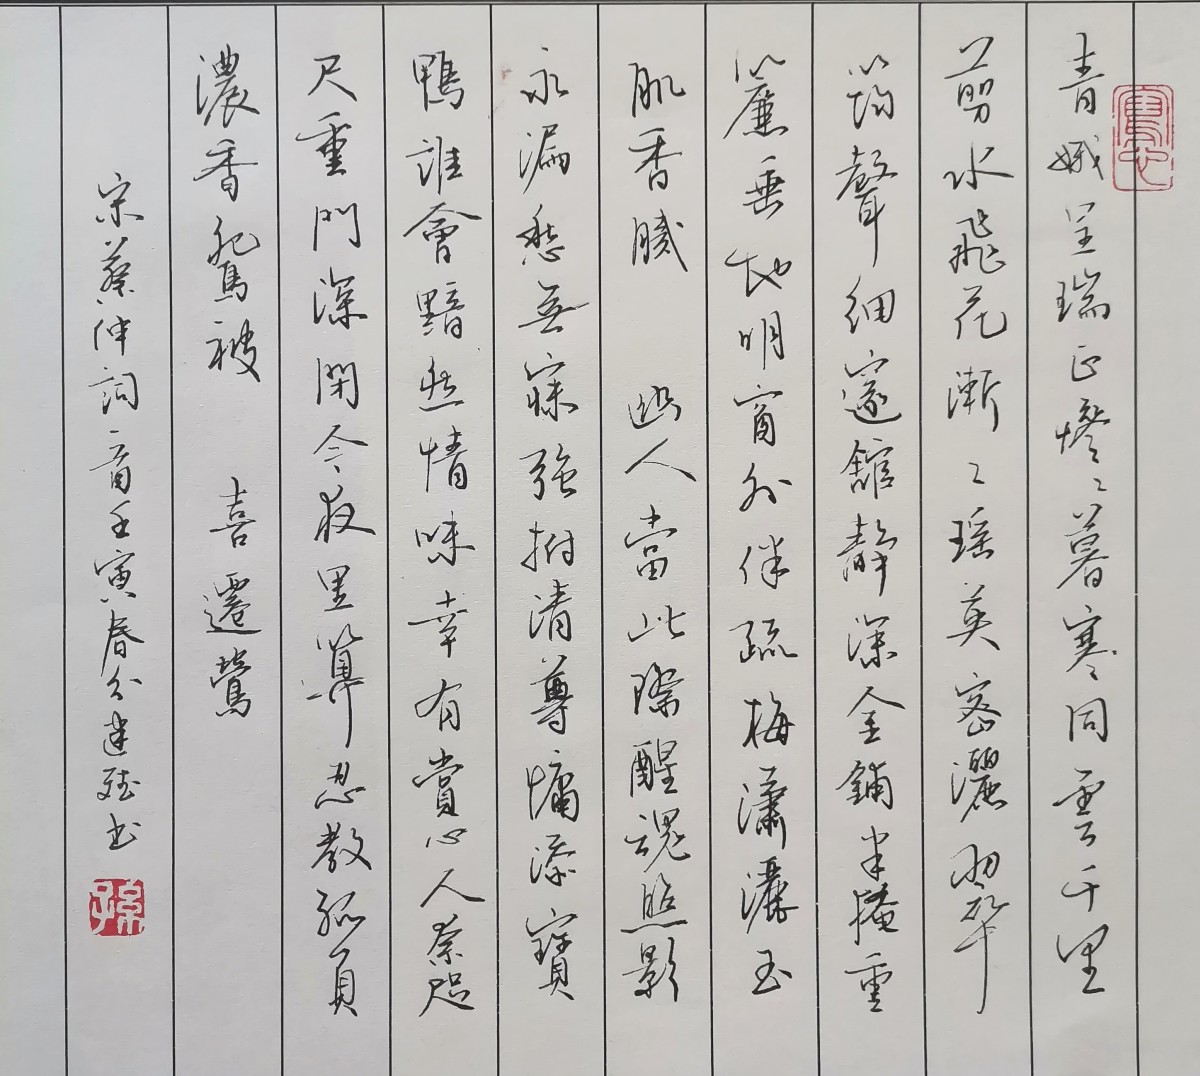 青娥呈瑞正慘〻暮寒同雲千里
剪水飛花漸〻瑤英密灑翠
筠聲細邃館靜深金鋪半掩重
簾垂地明窗外伴疏梅瀟灑玉
肌香膩 幽人當此際醒魂照影
永漏愁無寐強拊清尊慵添寶
鴨誰會黯然情味幸有賞心人奈咫
尺重門深閉今夜里算忍教孤負
濃香鴛被 喜遷鶯
宋蔡伸詞一首壬寅春分建強书
孫